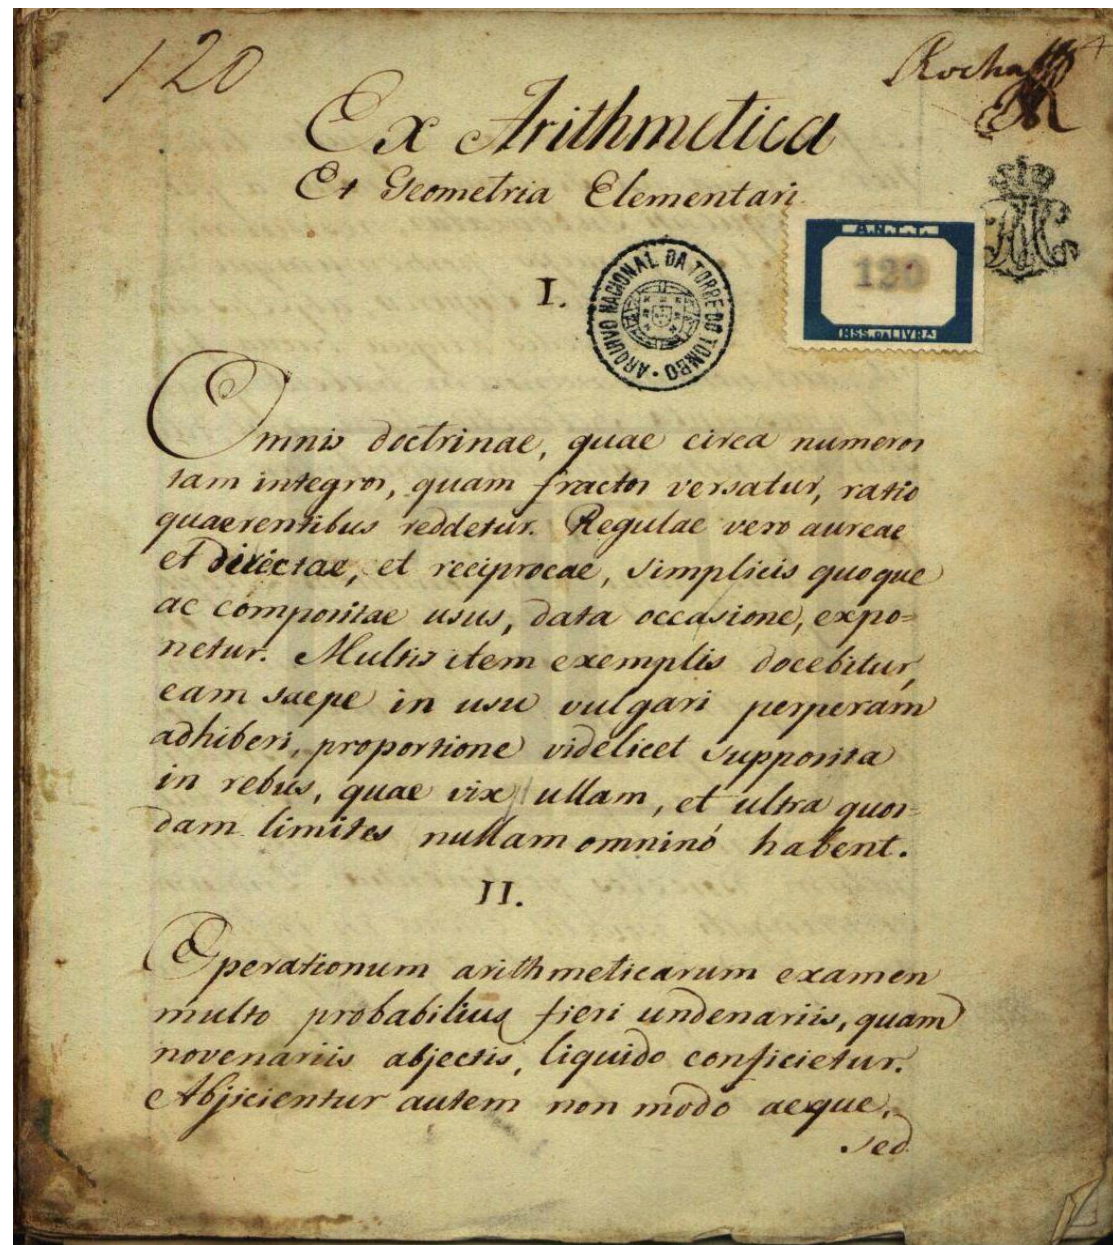 120
Rocha
Ex Arithmetica
Et Geometria Elementari
A.N.T.T.
120
MSS. DA LIVRA.
ARQUIVO NACIONAL DA TORRE DO TOMBO
I.
Omnis doctrinae, quae circa numeros
tam integros, quam fractos versatur, ratio
quaerentibus reddetur. Regulae vero aureae
et directae, et reciprocae, simplicis quoque
ac compositae usus, data occasione, expo=
netur. Multis item exemplis docebitur,
eam saepe in usu vulgari perperám
adhiberi, proportione videlicet supposita
in rebus, quae vix ullam, et ultra quos-
dam limites nullam omninó habent.
II.
Operationum arithmeticarum examen
multo probabilius fieri undenariis, quam
novenariis abjectis, liquido conficietur.
Abjicientur autem non modo aeque,
sed